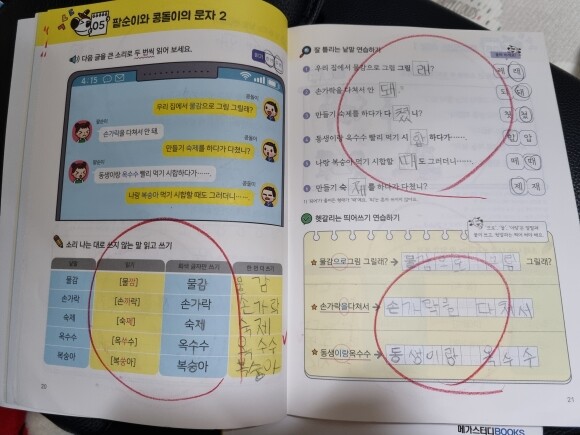 05 팥순이와 콩돌이의 문자 2
다음 글을 큰 소리로 두 번씩 읽어 보세요.
4:15
콩돌이
우리 집에서 물감으로 그림 그릴래?
팥순이
손가락을 다쳐서 안 돼.
콩돌이
만들기 숙제를 하다가 다쳤니?
팥순이
동생이랑 옥수수 빨리 먹기 시합하다가……
콩돌이
나랑 복숭아 먹기 시합할 때도 그러더니……
소리 나는 대로 쓰지 않는 말 읽고 쓰기
낱말 읽기 회색 글자만 쓰기 한 번 더 쓰기
물감 [물깜] 물감 물감
손가락 [손까락] 손가락 손가락
숙제 [숙쩨] 숙제 숙제
옥수수 [옥쑤수] 옥수수 옥수수
복숭아 [복쑹아] 복숭아 복숭아
20
잘 틀리는 낱말 연습하기
우리 집에서 물감으로 그림 그릴 래?
손가락을 다쳐서 안 돼.
만들기 숙제를 하다가 다 쳤 니?
동생이랑 옥수수 빨리 먹기 시 합 하다가……
나랑 복숭아 먹기 시합할 때 도 그러더니……
만들기 숙 제 를 하다가 다쳤니?
헷갈리는 띄어쓰기 연습하기
물감으로그림 그릴래? → 물감으로 그림 그릴래?
손가락을다쳐서 → 손가락을 다쳐서
동생이랑옥수수 → 동생이랑 옥수수
21
메가스터디BOOKS